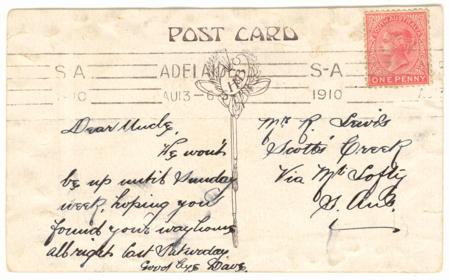 POST CARD
SOUTH AUSTRALIA
ONE PENNY
S A ADELAIDE S-A
1910 AU13-6 1910
Dear Uncle,
We won't
be up until Sunday
week, hoping you
found your way home
allright last Saturday
Good bye Dave.
Mr R. Lewis
Scotts Creek
Via Mt Lofty
S. Aus.